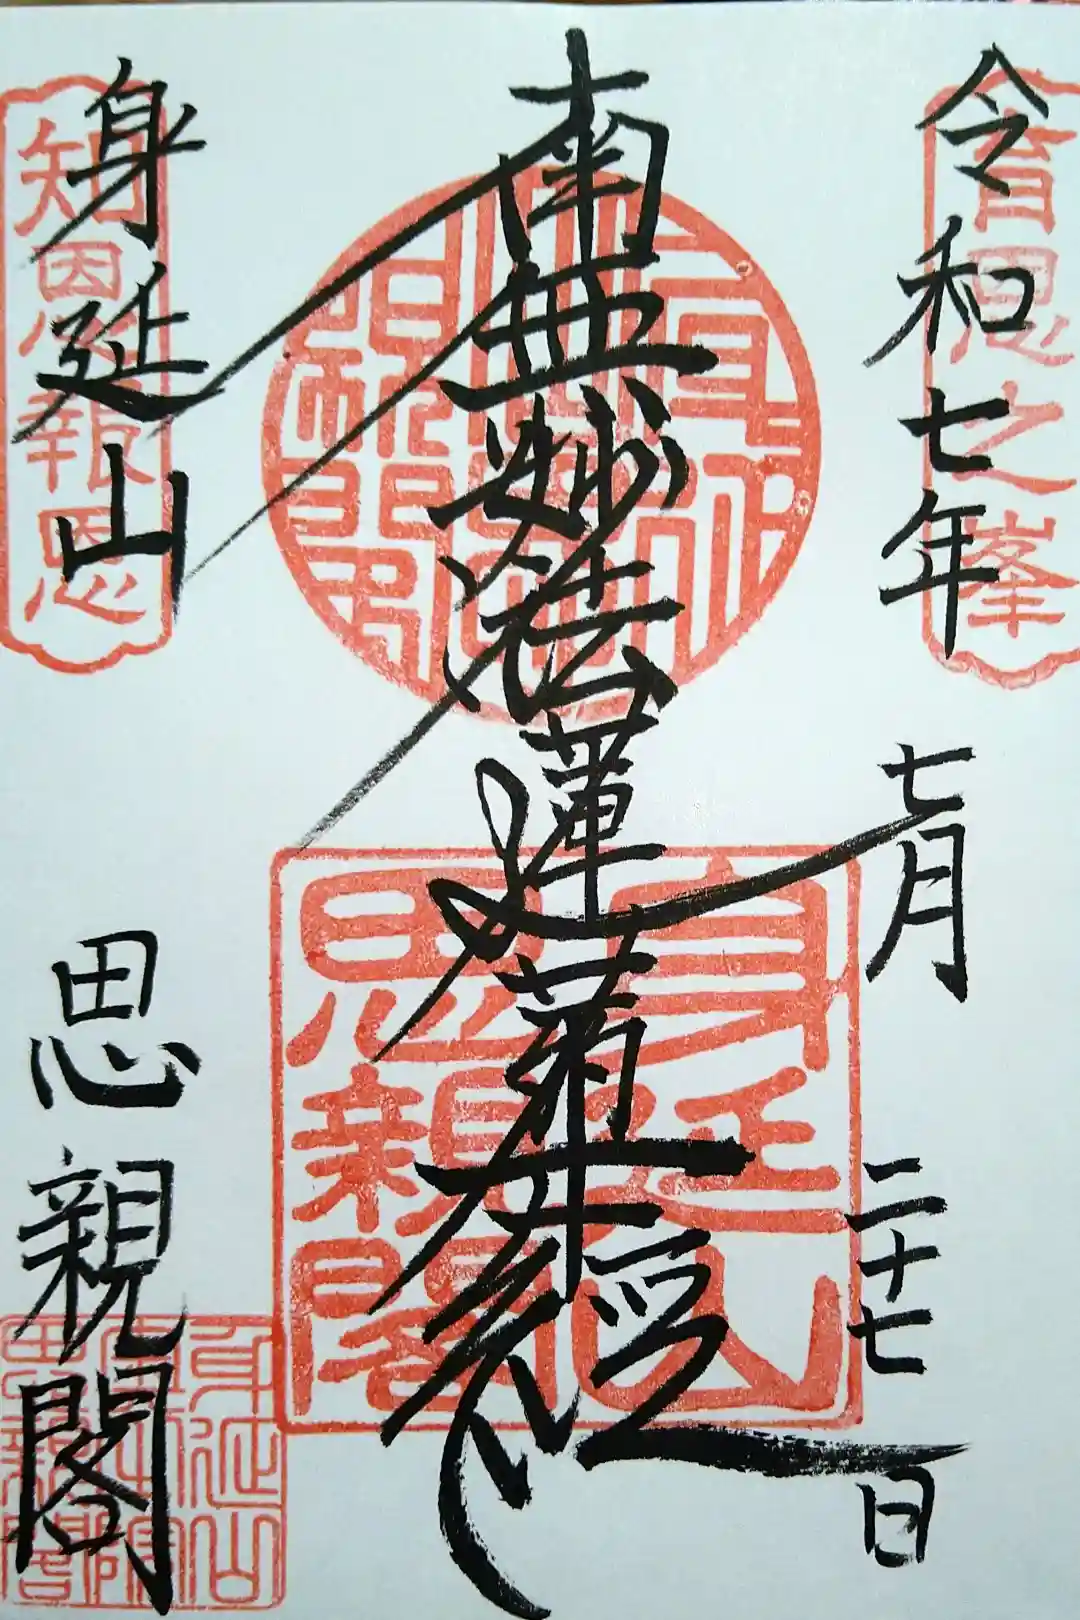 令和七年七月二十七日
育恩之峯
南無妙法蓮華経
身延山思親閣
身延山
思親閣
知恩報恩